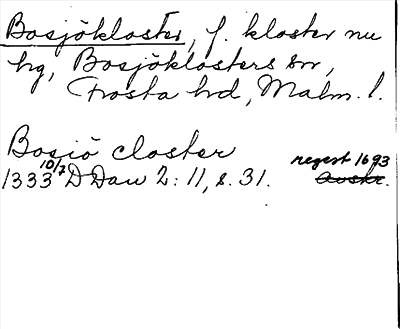 Bosjökloster, f. kloster nu
hg, Bosjöklosters sn,
Frosta hd, Malm. l.
Bosiö closter
1333 10/7 DDan 2: 11, s. 31. regest 1693 Avskr.